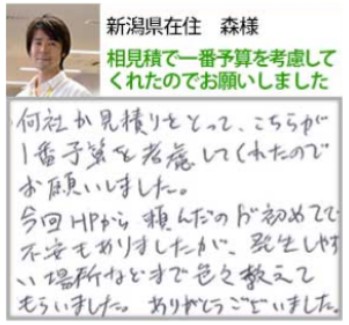 新潟県在住　森様
相見積で一番予算を考慮して
くれたのでお願いしました
何社か見積りをとって、こちらが
1番予算を考慮してくれたので
お願いしました。
今回HPから頼んだのが初めてで
不安もありましたが、発生しやす
い場所などまで色々教えて
もらいました。ありがとうございました。